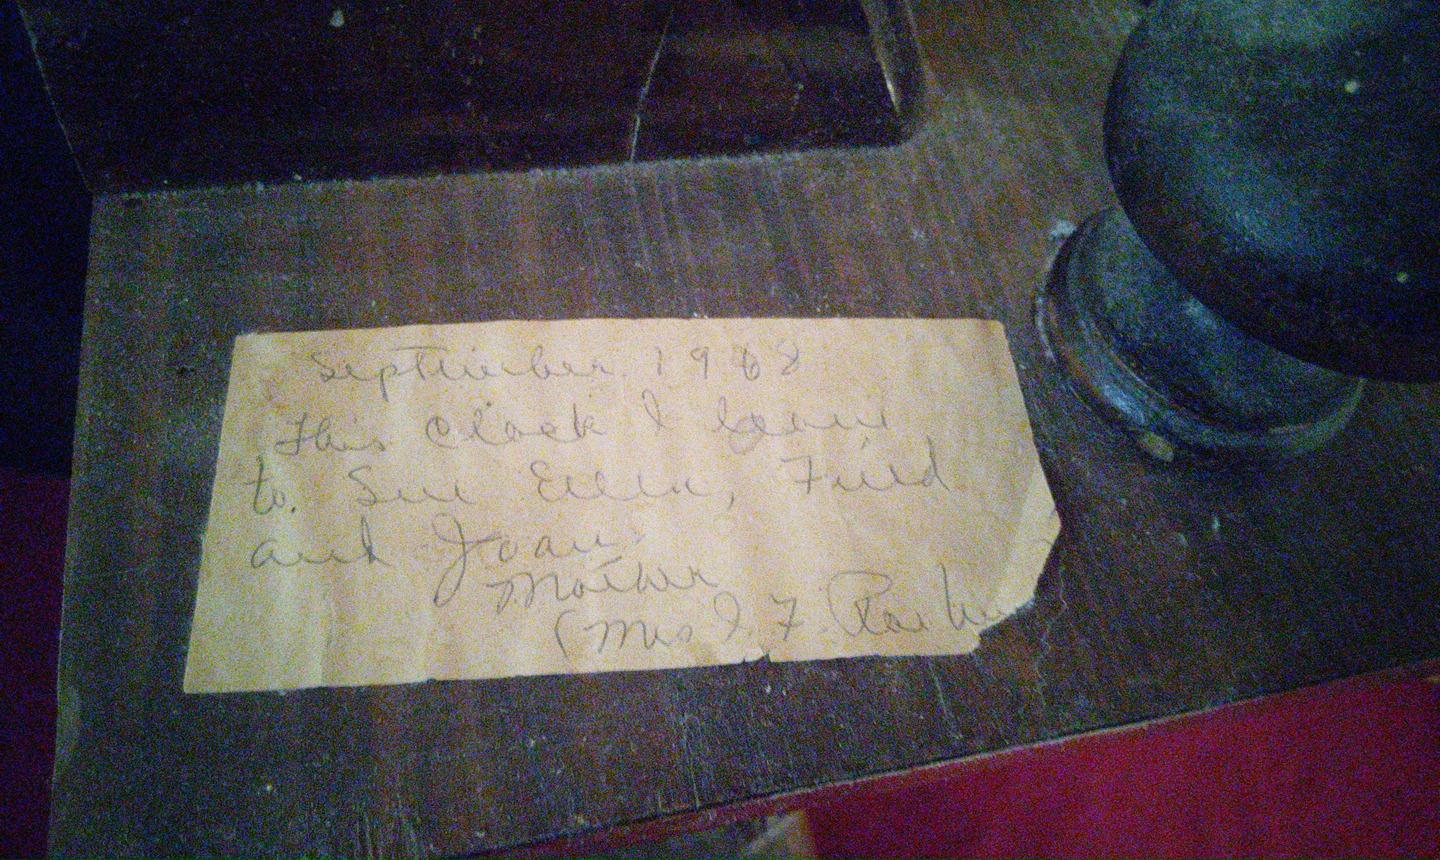 September 1968
This Clock I leave
to. Sue Ellen,
and Joan.
Mother
(Mrs J. F.